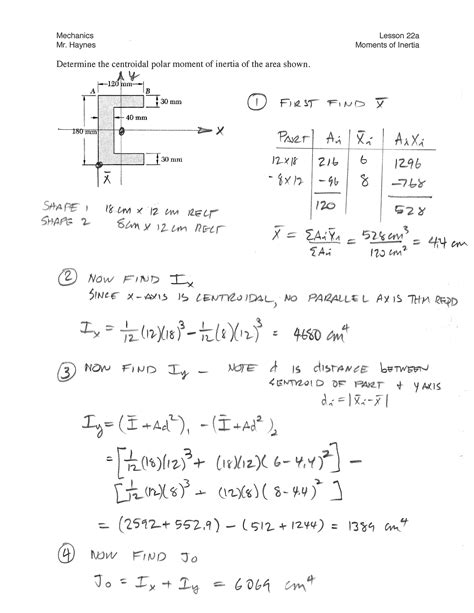 Mechanics
Mr. Haynes
Lesson 22a
Moments of Inertia
Determine the centroidal polar moment of inertia of the area shown.
120 mm
y
A
B
30 mm
40 mm
180 mm
x
30 mm
x̄
① FIRST FIND X̄
PART | Ai | X̄i | AiXi
12x18 | 216 | 6 | 1296
-8x12 | -96 | 8 | -768
120 | 528
X̄ = ΣAiX̄i / ΣAi = 528 cm³ / 120 cm² = 4.4 cm
SHAPE 1 18 cm x 12 cm RECT
SHAPE 2 8cm x 12 cm RECT
② NOW FIND Ix
SINCE X-AXIS IS CENTROIDAL, NO PARALLEL AXIS THM REQD
Ix = 1/12 (12)(18)³ - 1/12 (8)(12)³ = 4680 cm⁴
③ NOW FIND Iy — NOTE d IS DISTANCE BETWEEN
CENTROID OF PART & Y AXIS
di = |X̄i - X̄|
Iy = (Ī + Ad²)₁ - (Ī + Ad²)₂
= [1/12 (18)(12)³ + (18)(12)(6-4.4)²] -
[1/12 (12)(8)³ + (12)(8)(8-4.4)²]
= (2592 + 552.9) - (512 + 1244) = 1389 cm⁴
④ NOW FIND Jo
Jo = Ix + Iy = 6069 cm⁴